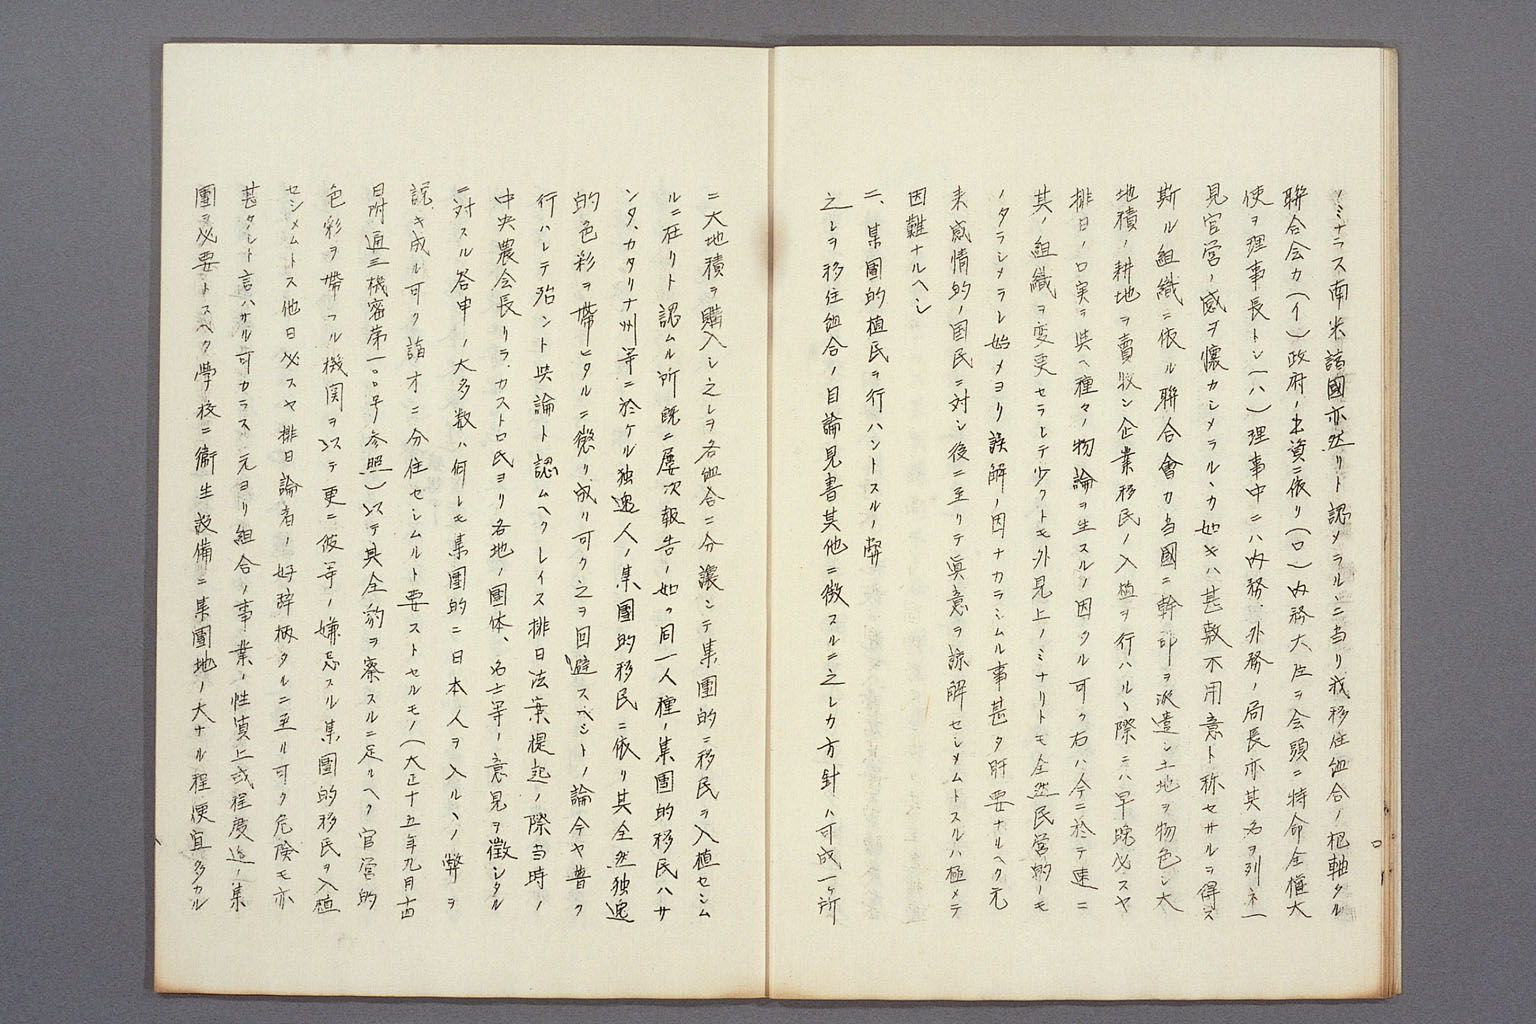 ノミナラス南米諸國亦然リト認メラルニ当リ我移住組合ノ枢軸タル
聯合会カ（イ）政府ノ出資ニ依リ（ロ）内務大臣ヲ会頭ニ特命全権大
使ヲ理事長トシ（ハ）理事中ニハ内務、外務ノ局長亦其名ヲ列ネ一
見官営ノ感ヲ懐カシメラルヽカ如キハ甚敷不用意ト称セサルヲ得ス
斯ル組織ニ依ル聯合會カ当國ニ幹部ヲ派遣シ土地ヲ物色シ大
地積ノ耕地ヲ買収シ企業移民ノ入植ヲ行ハルヽ際ニハ早晩必スヤ
排日ノ口実ヲ与ヘ種々ノ物論ヲ生スルノ因タル可ク右ハ今ニ於テ速ニ
其ノ組織ヲ変更セラレテ少クトモ外見上ノミナリトモ全然民営的ノモ
ノタラシメラレ始メヨリ誤解ノ因ナカラシムル事甚タ肝要ナリヘク元
来感情的ノ国民ニ対シ後ニ至リテ眞意ヲ諒解セシメムトスルハ極メテ
困難ナルヘシ
二、集團的植民ヲ行ハントスルノ弊
之レヲ移住組合ノ目論見書其他ニ徴スルニ之レカ方針ハ可成一ヶ所
ニ大地積ヲ購入シ之レヲ各組合ニ分譲シテ集團的ニ移民ヲ入植セシム
ルニ在リト認ムル所既ニ屡次報告ノ如ク同一人種ノ集團的移民ハサ
ンタ、カタリナ州等ニ於ケル独逸人ノ集團的移民ニ依リ其全然独逸
的色彩ヲ帯ヒタルニ懲リ成リ可ク之ヲ回避スヘシトノ論今ヤ普ク
行ハレテ殆ント與論ト認ムヘクレイス排日法案提起ノ際当時ノ
中央農会長リラ、カストロ氏ヨリ各地ノ團体、名士等ノ意見ヲ徴シタル
ニ対スル答申ノ大多数ハ何レモ集團的ニ日本人ヲ入ルヽノ弊ヲ
説キ成ル可ク諸方ニ分住セシムルト要ストセルモノ（大正十五年九月十四
日附通三機密第一〇〇号参照）以テ其全豹ヲ察スルニ足ルヘク官営的
色彩ヲ帯フル機関ヲ以テ更ニ彼等ノ嫌忌スル集團的移民ヲ入植
セシメムトス他日必スヤ排日論者ノ好辞柄タルニ至ル可ク危険モ亦
甚タシト言ハサル可カラス元ヨリ組合ノ事業ノ性質上或程度迄ノ集
團ヲ必要トスヘク學校ニ衛生設備ニ集團地ノ大ナル程便宜多カル